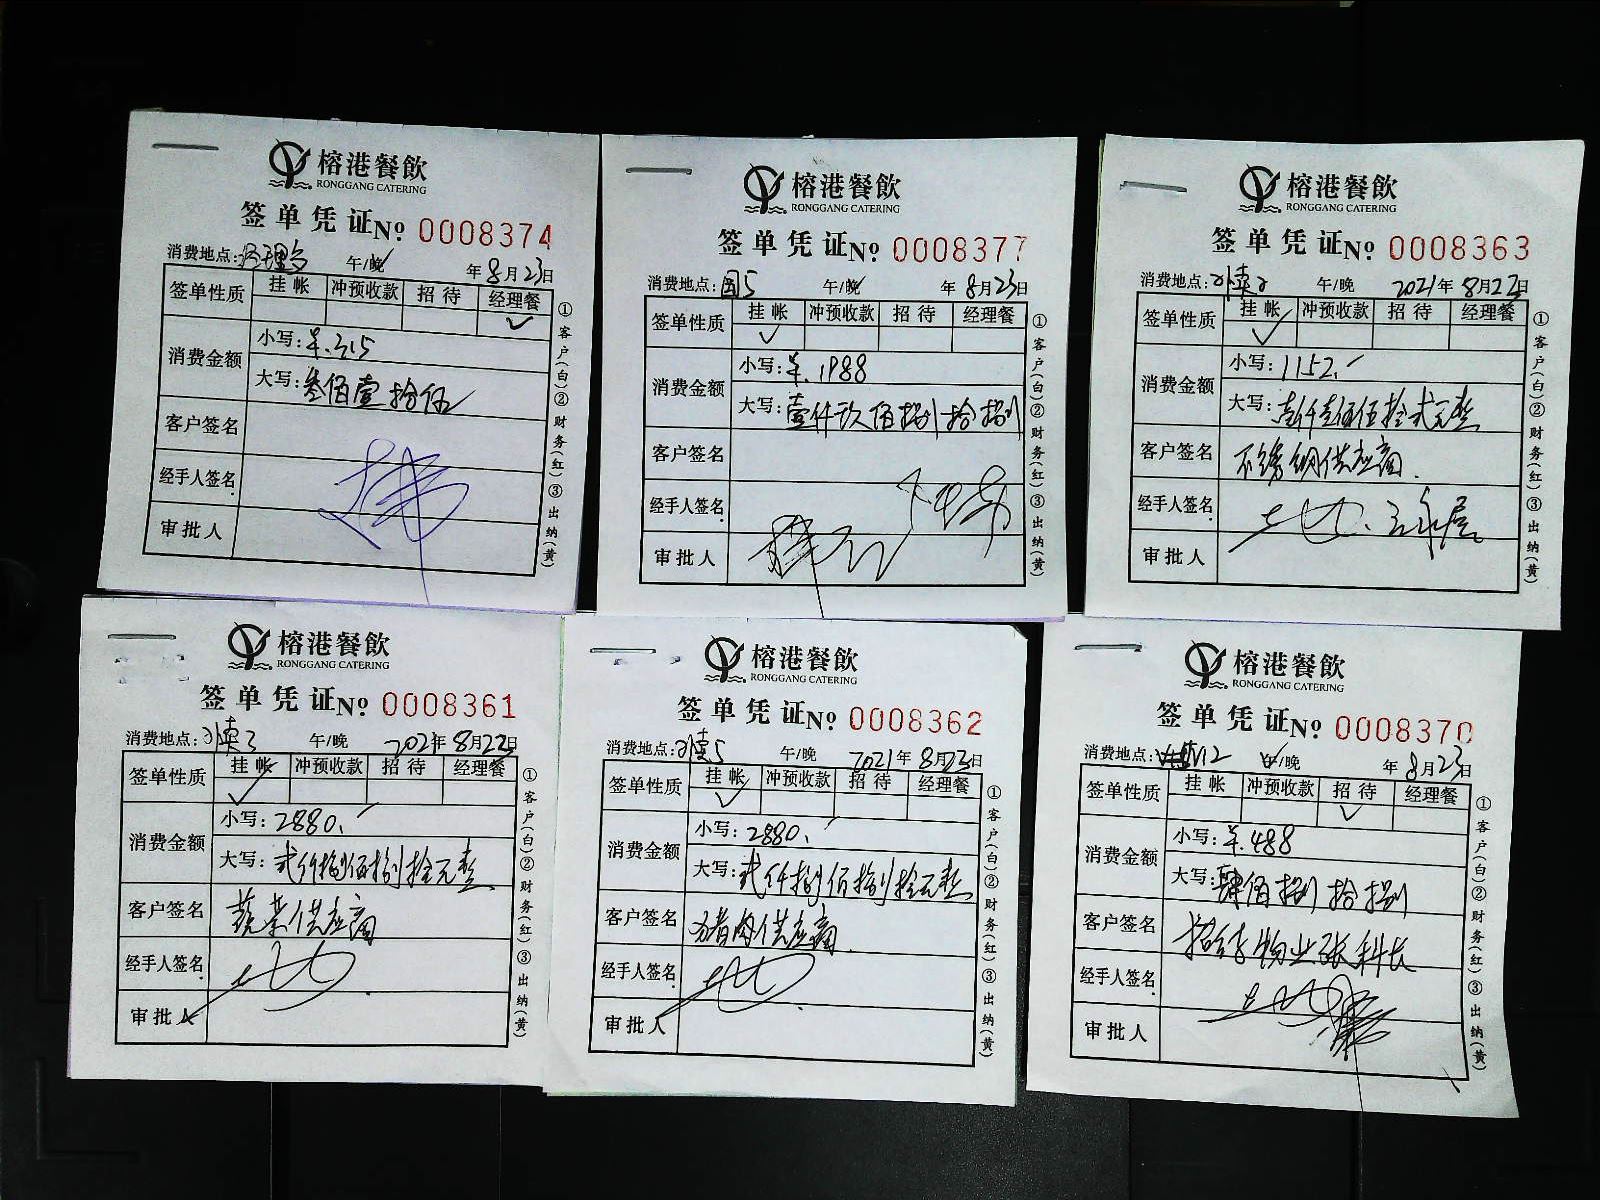 榕港餐飲
RONGGANG CATERING
签单凭证№ 0008374
消费地点: 午/晚 年8月23日
签单性质 挂帐 冲预收款 招待 经理餐
✓
消费金额 小写:¥.315
大写:叁佰壹拾伍
客户签名
经手人签名
审批人
①客户(白)②财务(红)③出纳(黄)
榕港餐飲
RONGGANG CATERING
签单凭证№ 0008377
消费地点:园5 午/晚 年8月23日
签单性质 挂帐 冲预收款 招待 经理餐
✓
消费金额 小写:¥.1988
大写:壹仟玖佰捌拾捌
客户签名
经手人签名
审批人
①客户(白)②财务(红)③出纳(黄)
榕港餐飲
RONGGANG CATERING
签单凭证№ 0008363
消费地点:外卖2 午/晚 2021年8月22日
签单性质 挂帐 冲预收款 招待 经理餐
✓
消费金额 小写:1152.
大写:壹仟壹佰伍拾贰元整
客户签名 不锈钢供应商
经手人签名
审批人
①客户(白)②财务(红)③出纳(黄)
榕港餐飲
RONGGANG CATERING
签单凭证№ 0008361
消费地点:外卖3 午/晚 2021年8月22日
签单性质 挂帐 冲预收款 招待 经理餐
✓
消费金额 小写:2880.
大写:贰仟捌佰捌拾元整
客户签名 蔬菜供应商
经手人签名
审批人
①客户(白)②财务(红)③出纳(黄)
榕港餐飲
RONGGANG CATERING
签单凭证№ 0008362
消费地点:外卖5 午/晚 2021年8月22日
签单性质 挂帐 冲预收款 招待 经理餐
✓
消费金额 小写:2880.
大写:贰仟捌佰捌拾元整
客户签名 猪肉供应商
经手人签名
审批人
①客户(白)②财务(红)③出纳(黄)
榕港餐飲
RONGGANG CATERING
签单凭证№ 0008370
消费地点: 12 午/晚 年8月23日
签单性质 挂帐 冲预收款 招待 经理餐
✓
消费金额 小写:¥.488
大写:肆佰捌拾捌
客户签名 招待物业张科长
经手人签名
审批人
①客户(白)②财务(红)③出纳(黄)